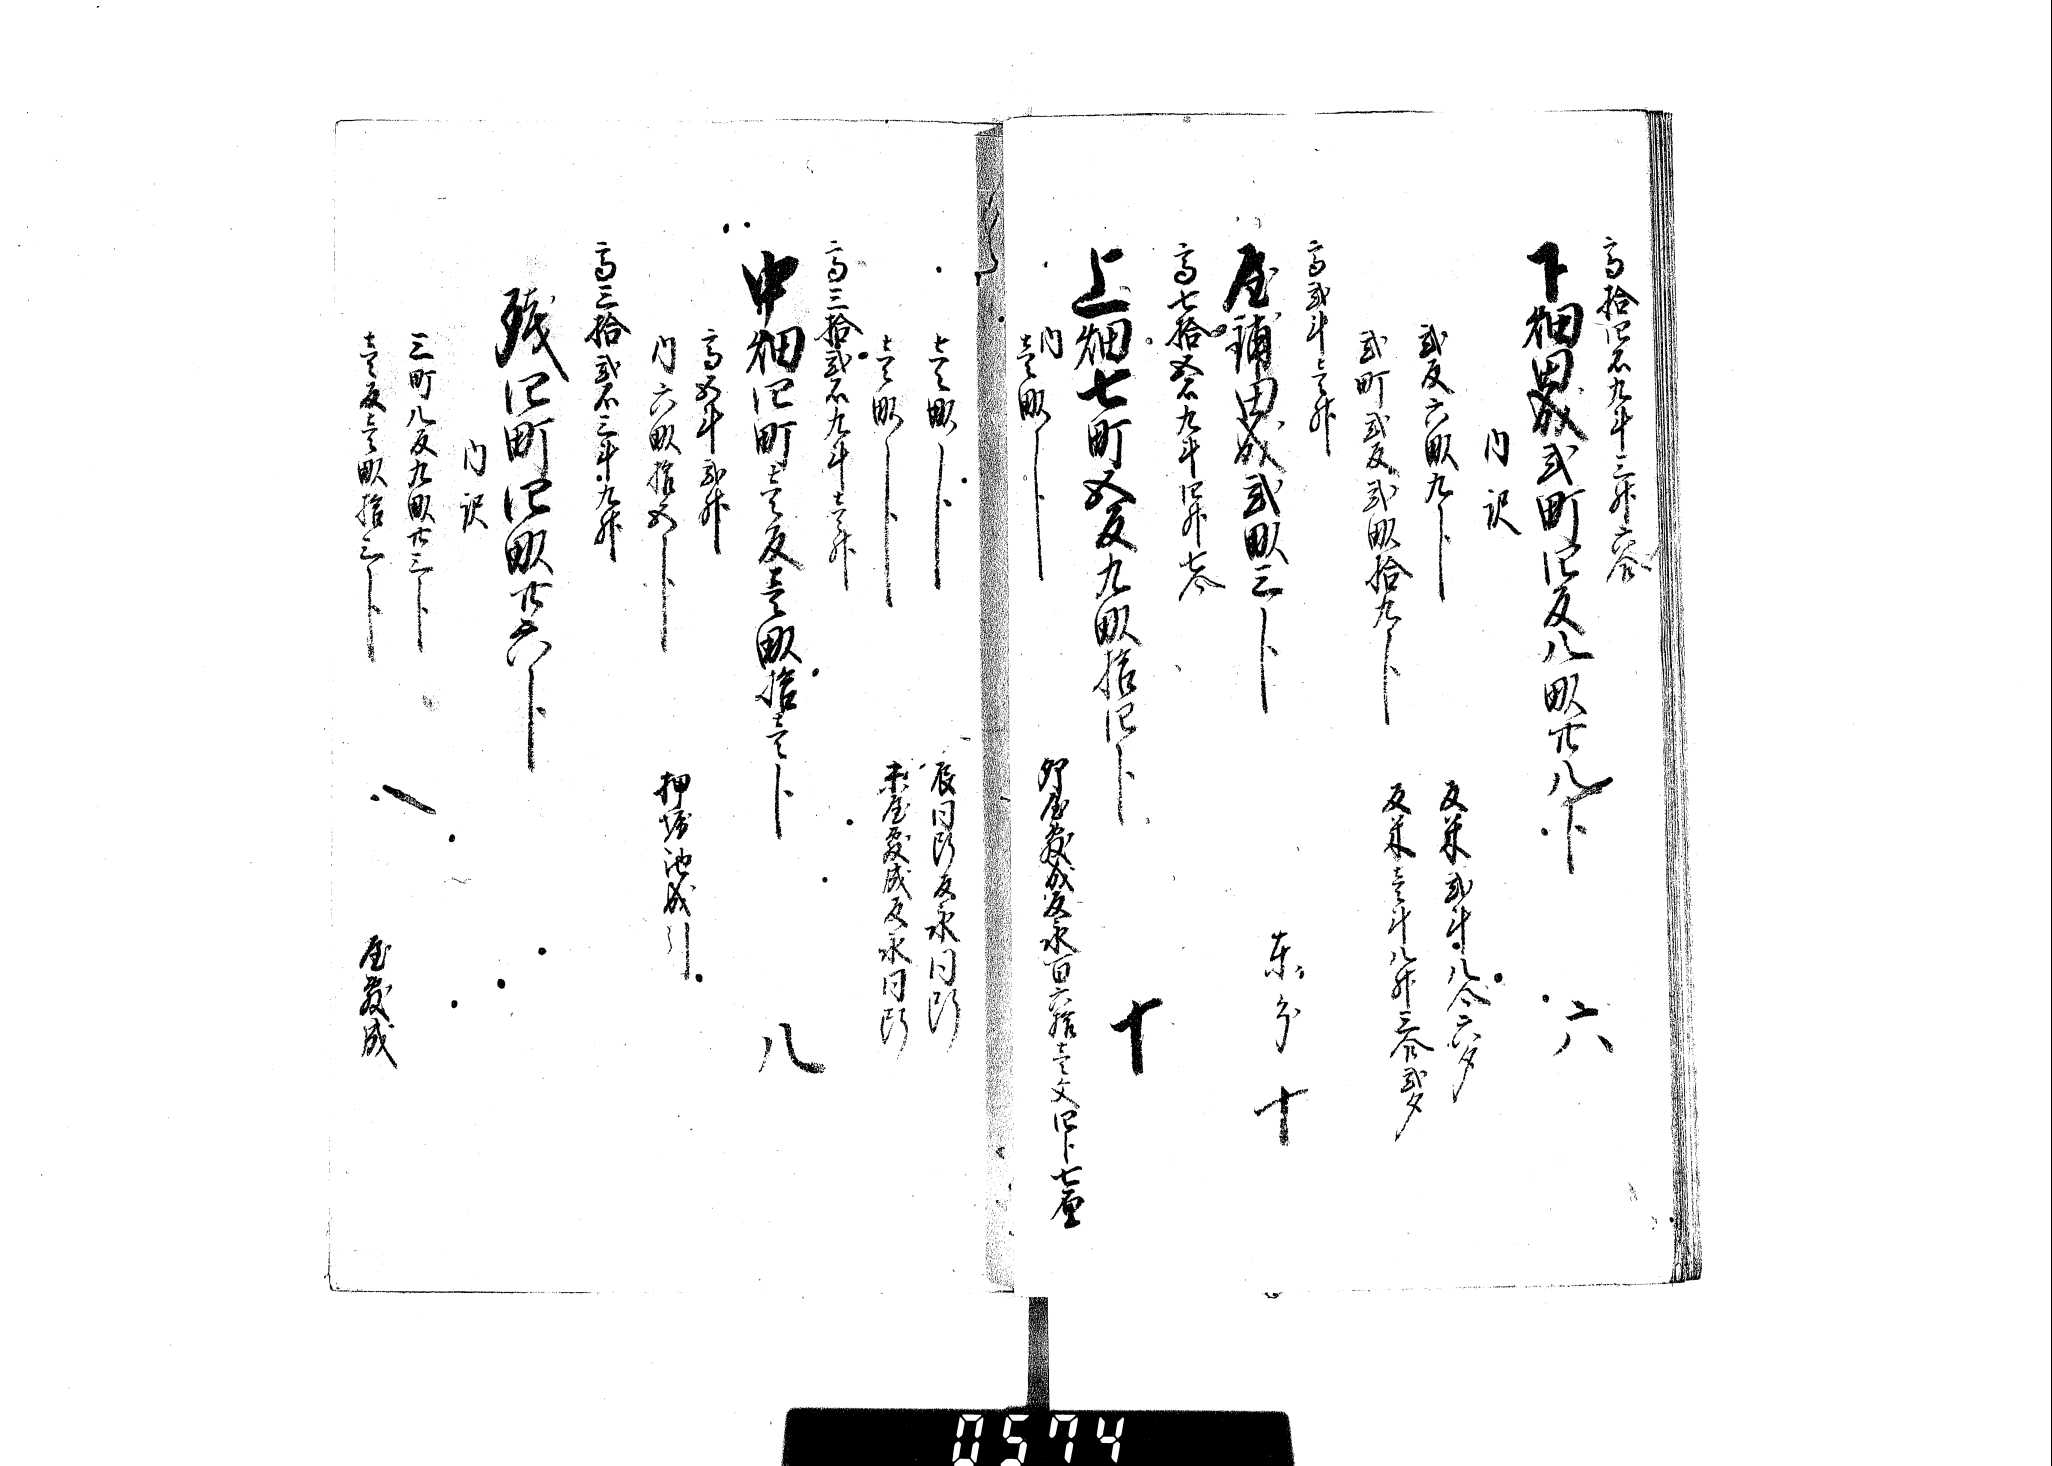 高拾四石九斗三升六合
下畑田成弐町四反八畝廿八卜 六
内訳
弐反六畝九卜 反米弐斗八合六夕
弐町弐反弐畝拾九卜 反米壱斗八升三合弐夕
高弐斗壱升
屋鋪田成弐畝三卜 十
高七拾五石九斗四升七合
上畑七町五反九畝拾四卜 十
内
壱畝卜 卯屋敷成反永百六拾壱文四卜七厘
壱畝卜 辰同断反永同断
壱畝卜 未屋敷成反永同断
高三拾弐石九斗壱升
中畑四町壱反壱畝拾壱卜 八
高五斗弐升
内六畝拾五卜 押堀池成引
高三拾弐石三斗九升
残四町四畝廿六卜
内訳
三町八反九畝廿三卜
壱反壱畝拾三卜 屋敷成
0574